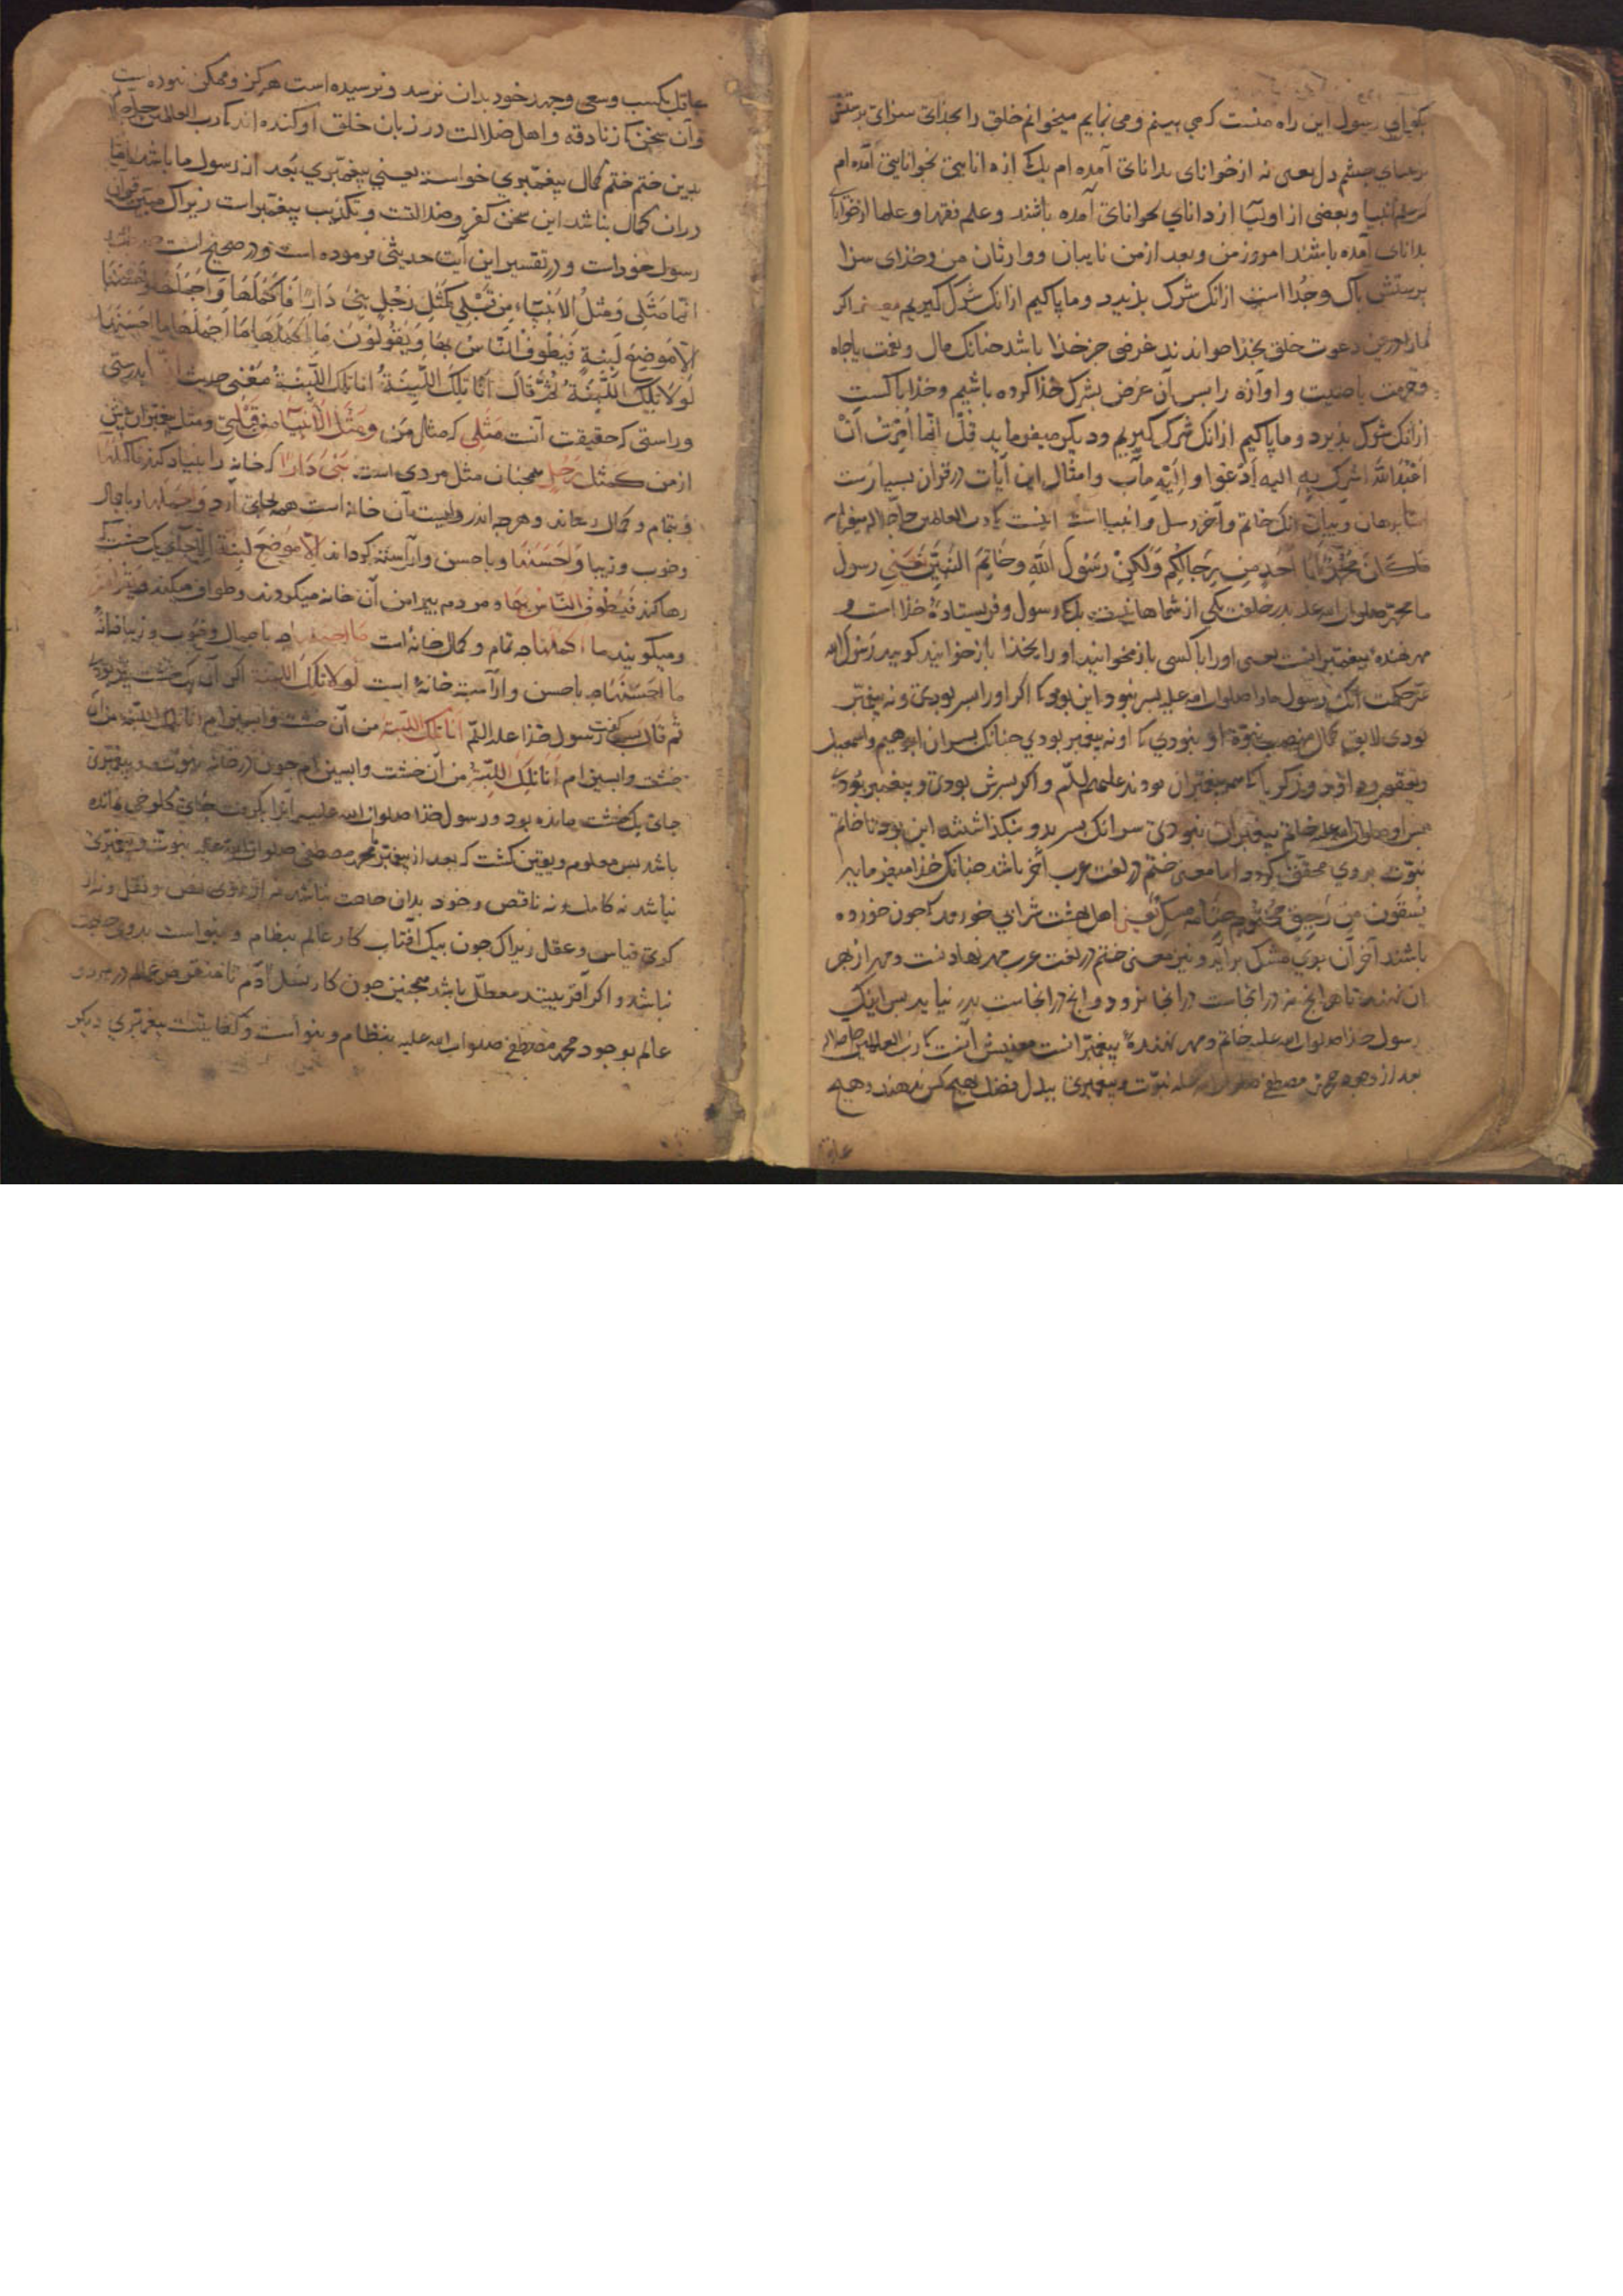 بکویای رسول این راه منست که می بینم و می نمایم میخوانم خلق را بخذای سزای پرستش
بچشم دل یعنی نه از خوانای بدانای آمده ام بلک از دانایی بخوانایی آمده ام
و بعضی از اولیا از دانای بخوانای آمده باشند و علم فقها و علما از خوانای
بدانای آمده باشند امروز من و بعد از من نایبان و وارثان من و خذای سزا
پرستش پاک و جذا است ازانک شرک بذیرد و ما پاکیم ازانک شرک کیریم اکر
ما را درین دعوت خلق بخذا خواندند غرضی جز خذا باشد جنانک مال و نعمت یا جاه
و حرمت یا صیت و اوازه را پس آن غرض بشرک خذا کرده باشیم و خذا پاکست
ازانک شرک بذیرد و ما پاکیم ازانک شرک کیریم و دیکر میفرماید قُلْ اِنَّمَا اُمِرْتُ اَنْ
اَعْبُدَ اللّٰهَ اُشْرِکَ بِهِ الیه اَدْعُوا وَ اِلَیْهِ مَآب و امثال این آیات در قرآن بسیارست
اما برهان و بیان انک خاتم و آخر رسل و انبیا است اینست که رب العالمین
مَا کَانَ مُحَمَّدٌ اَبَا اَحَدٍ مِنْ رِجَالِکُمْ وَلٰکِنْ رَسُولَ اللّٰهِ وَ خَاتِمَ النَّبِیِّنَ یعنی رسول
ما محمد صلوات الله علیه بدر خلفت یکی از شماها نیست بلک رسول و فریستاده خذا است و
مهر نهنده پیغمبرانست یعنی او را با کسی باز مخوانید او را بخذا باز خوانید کویید رسول الله
حکمت انک رسول خدا را صلوات الله علیه پسر نبود این بود که اکر او را پسر بودی و نه پیغمبر
بودی لایق کمال منصب نبوة او نبودی که او نه پیغمبر بودی جنانک پسران ابرهیم و اسمعیل
و یعقوب و داود و زکریا که همه پیغمبران بودند علیهم السلم و اکر پسرش بودی و پیغمبر بودی
پس او صلوات الله علیه خاتم پیغمبران نبودی سر انک پسر بدو بنکذاشتند این بود تا خاتم
نبوت بروی محقق کردد اما معنی ختم در لغت عرب آخر باشد جنانک خذا میفرماید
یُسْقَوْنَ مِنْ رَحِیقٍ مَخْتُومٍ خِتَامُهُ مِسْکٌ یعنی اهل بهشت شرابی خورند که جون خورده
باشند آخر آن بوی مشک برآید و نیز معنی ختم در لغت عرب مهر نهادنست و مهر از بهر
ان نهند تا هر انج نه در انجاست در انجا نرود و انج در انجاست بدر نیاید پس اینک
رسول خذا صلوات الله علیه خاتم و مهر نهنده پیغمبرانست معنیش آنست که رب العالمین
بعد از وجود محمد مصطفی صلوات الله علیه نبوت و پیغمبری ببدل فضل بهیج کس ندهند و هیج
عاقل
عاقل بکسب و سعی و جهد خود بدان نرسد و نرسیده است هرکز و ممکن نبوده است
و آن سخن که زنادقه و اهل ضلالت در زبان خلق اوکنده اند که رب العالمین
بدین ختم ختم کمال پیغمبری خواست یعنی پیغمبری بعد از رسول ما باشد اما
دران کمال نباشد این سخن کفر و ضلالتست و تکذیب پیغمبر است زیراک
رسول خود است و در تفسیر این آیت حدیثی فرموده است و در صحیح است
اِنَّمَا مَثَلِی وَ مَثَلُ الْاَنْبِیَاءِ مِنْ قَبْلِی کَمَثَلِ رَجُلٍ بَنَی دَارًا فَاَکْمَلَهَا وَ اَجْمَلَهَا
اِلَّا مَوْضِعَ لَبِنَةٍ فَیَطُوفُ النَّاسُ بِهَا وَ یَقُولُونَ مَا اَکْمَلَهَا مَا اَجْمَلَهَا مَا اَحْسَنَهَا
لَوْلَا تِلْکَ اللَّبِنَةُ ثُمَّ قَالَ اَنَا تِلْکَ اللَّبِنَةُ اَنَا تِلْکَ اللَّبِنَةُ مَعْنَی حدیث بدرستی
و راستی که حقیقت آنست مَثَلِی که مثال من وَ مَثَلُ الْاَنْبِیَا مِنْ قَبْلِی و مثل پیغمبران پیش
از من کَمَثَلِ رَجُلٍ همجنان مثل مردی است بَنَی دَارًا که خانه را بنیاد کند
و بتمام و کمال رساند و هرجه اندر وایست آن خانه است همه بجای آرد وَ اَجْمَلَهَا و با جمال
و خوب و زیبا وَ اَحْسَنَهَا و با حسن و آراسته کرداند اِلَّا مَوْضِعَ لَبِنَةٍ الا جای یک خشت که
رها کند فَیَطُوفُ النَّاسُ بِهَا و مردم پیرامن آن خانه میکردند و طواف میکنند
و میکویند ما اَکْمَلَهَا جه تمام و کمال خانه است مَا اَجْمَلَهَا جه با جمال و خوب و زیبا خانه
مَا اَحْسَنَهَا جه با حسن و آراسته خانه است لَوْلَا تِلْکَ اللَّبِنَةُ اکر آن یک خشت
ثُمَّ قَالَ پس کفت رسول خذا علیه السلم اَنَا تِلْکَ اللَّبِنَة من آن خشت واپسین ام اَنَا تِلْکَ اللَّبِنَة من آن
خشت واپسین ام اَنَا تِلْکَ اللَّبِنَة من آن خشت واپسین ام جون در خانه نبوت و پیغمبری
جای یک خشت مانده بود و رسول خذا صلوات الله علیه آنرا بکرفت جای کلوخی نمانده
باشد پس معلوم و یقین کشت که بعد از پیغمبر محمد مصطفی صلوات الله علیه نبوت و پیغمبری
نباشد نه کامل و نه ناقص و خود بدان حاجت نباشد نه از روی نص و نقل و نه از
روی قیاس و عقل زیراک جون بیک آفتاب کار عالم بنظام و بنوا است بدوی حاجت
نباشد و اکر آفرینند معطل باشد همجنین جون کار نسل آدم تا منقرض عالم در هر دو
عالم بوجود محمد مصطفی صلوات الله علیه بنظام و بنواست و کفایتست پیغمبری دیکر